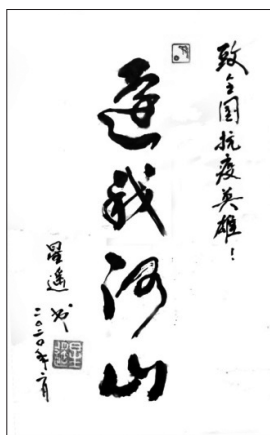 致全国抗疫英雄！
还我河山
星遥书
二〇二〇年二月